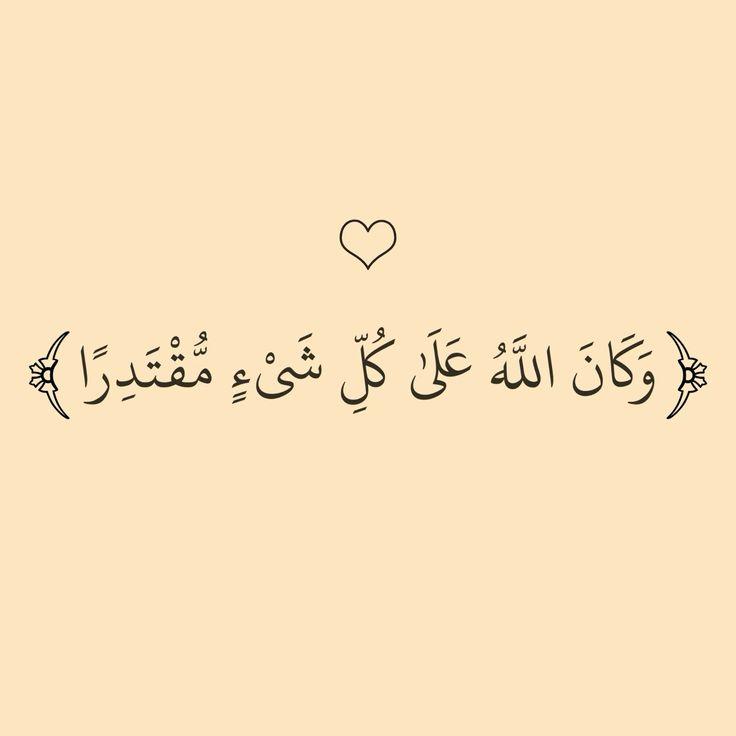 ﴿وَكَانَ اللَّهُ عَلَىٰ كُلِّ شَىْءٍ مُّقْتَدِرًا﴾